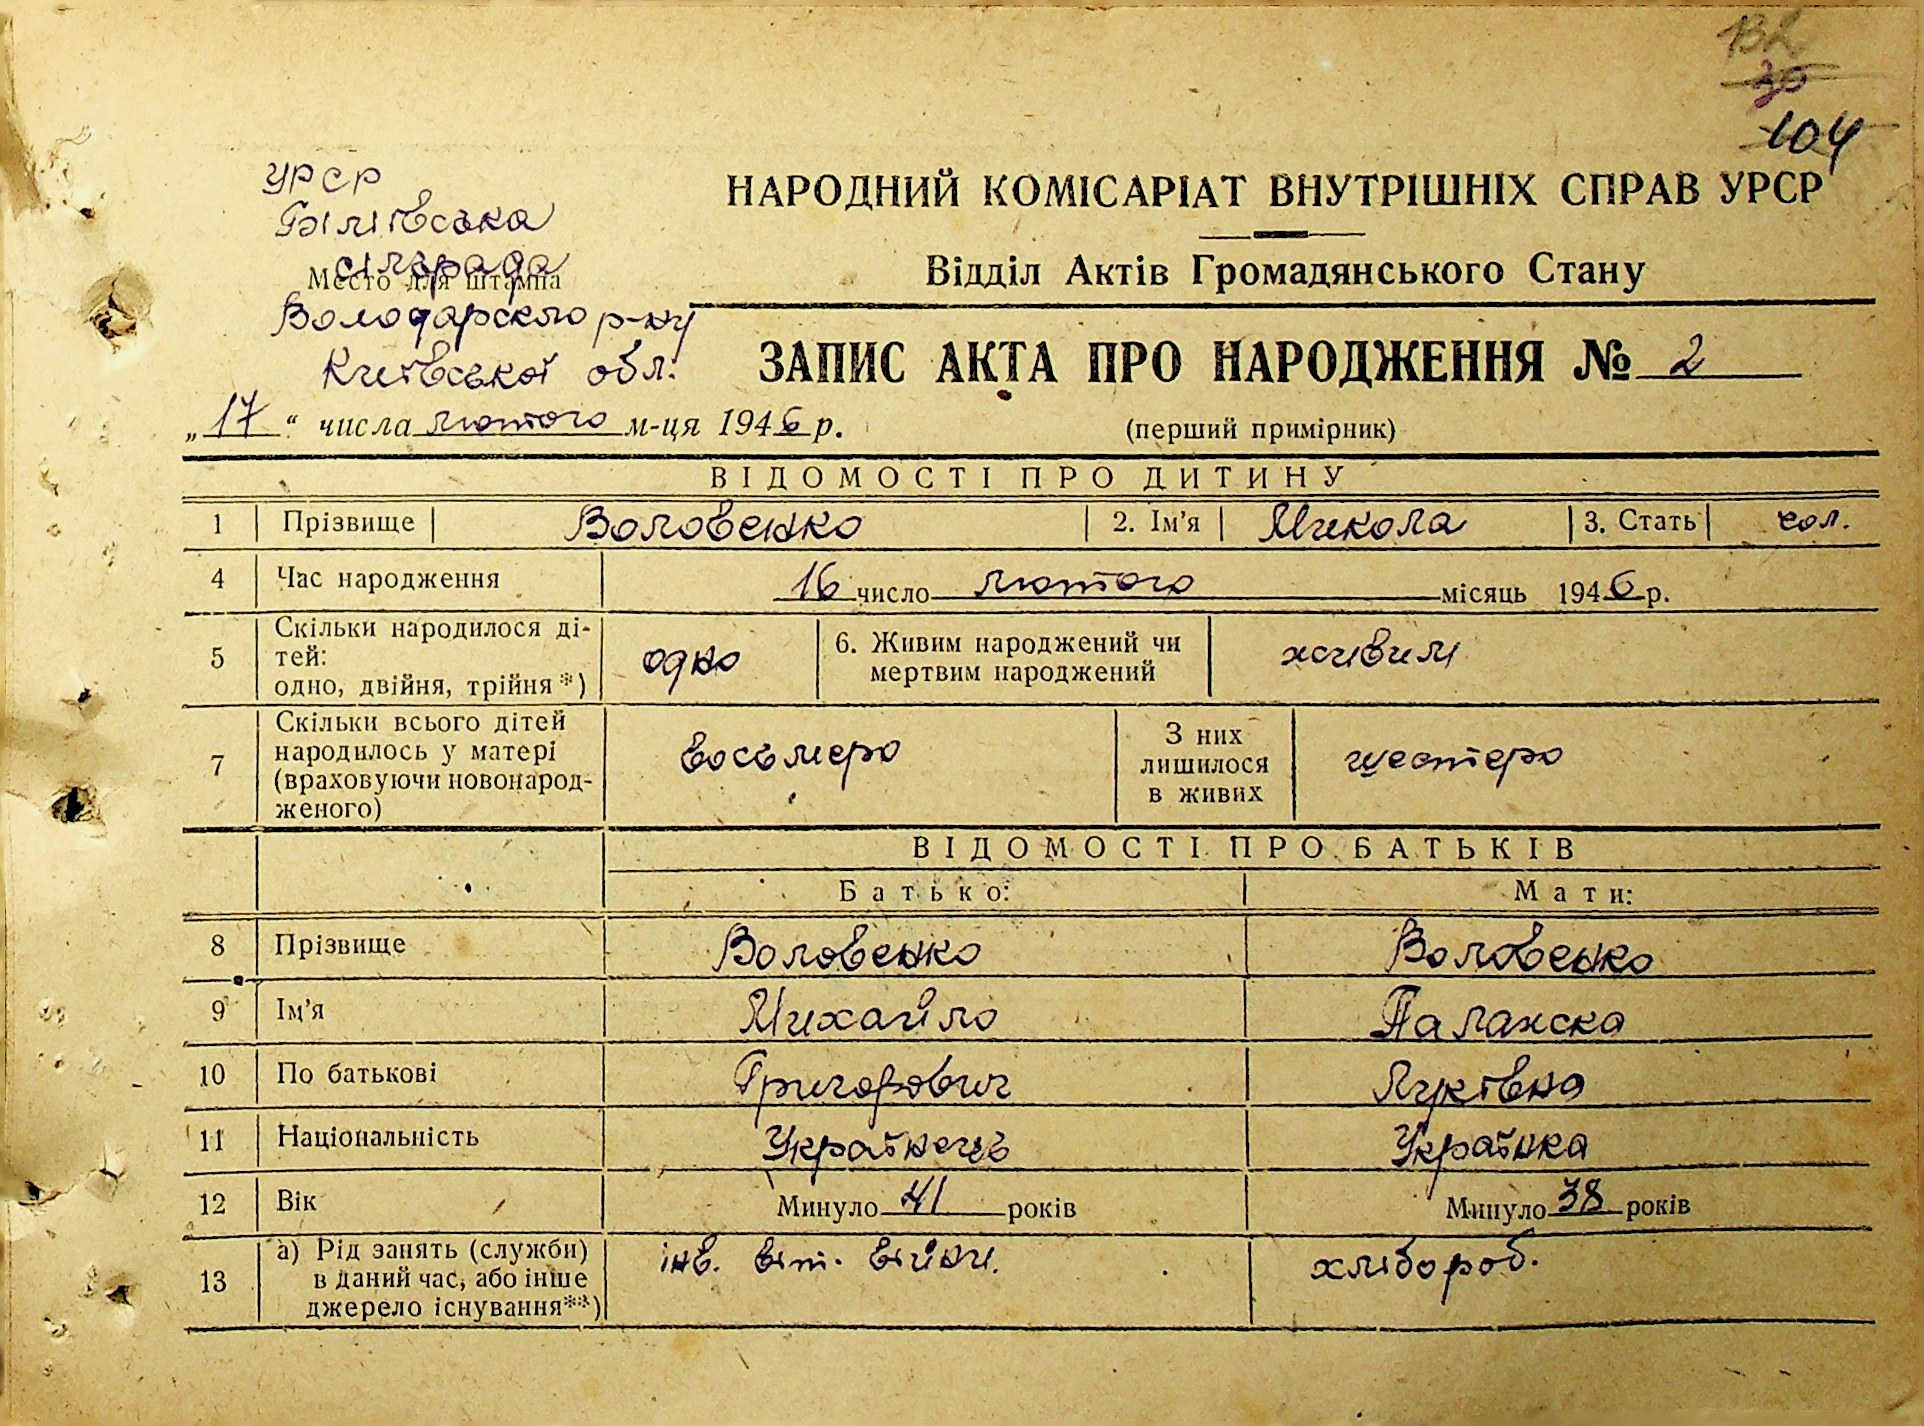 132
30
104
УРСР
Біліївська
сільрада
Место для штампа
Володарсклго р-ну
Київської обл.
НАРОДНИЙ КОМІСАРІАТ ВНУТРІШНІХ СПРАВ УРСР
Відділ Актів Громадянського Стану
ЗАПИС АКТА ПРО НАРОДЖЕННЯ № 2
„17“ числа лютого м-ця 1946 р. (перший примірник)
ВІДОМОСТІ ПРО ДИТИНУ
1 Прізвище Воловенко 2. Ім'я Микола 3. Стать чол.
4 Час народження 16 число лютого місяць 1946 р.
5 Скільки народилося ді-
тей:
одно, двійня, трійня*) одно 6. Живим народжений чи
мертвим народжений живим
7 Скільки всього дітей
народилось у матері
(враховуючи новонарод-
женого) восьмеро З них
лишилося
в живих шестеро
ВІДОМОСТІ ПРО БАТЬКІВ
Батько: Мати:
8 Прізвище Воловенко Воловенко
9 Ім'я Михайло Палажска
10 По батькові Григорович Луківна
11 Національність Українець Українка
12 Вік Минуло 41 років Минуло 38 років
13 а) Рід занять (служби)
в даний час, або інше
джерело існування**) інв. віт. війни. хлібороб.